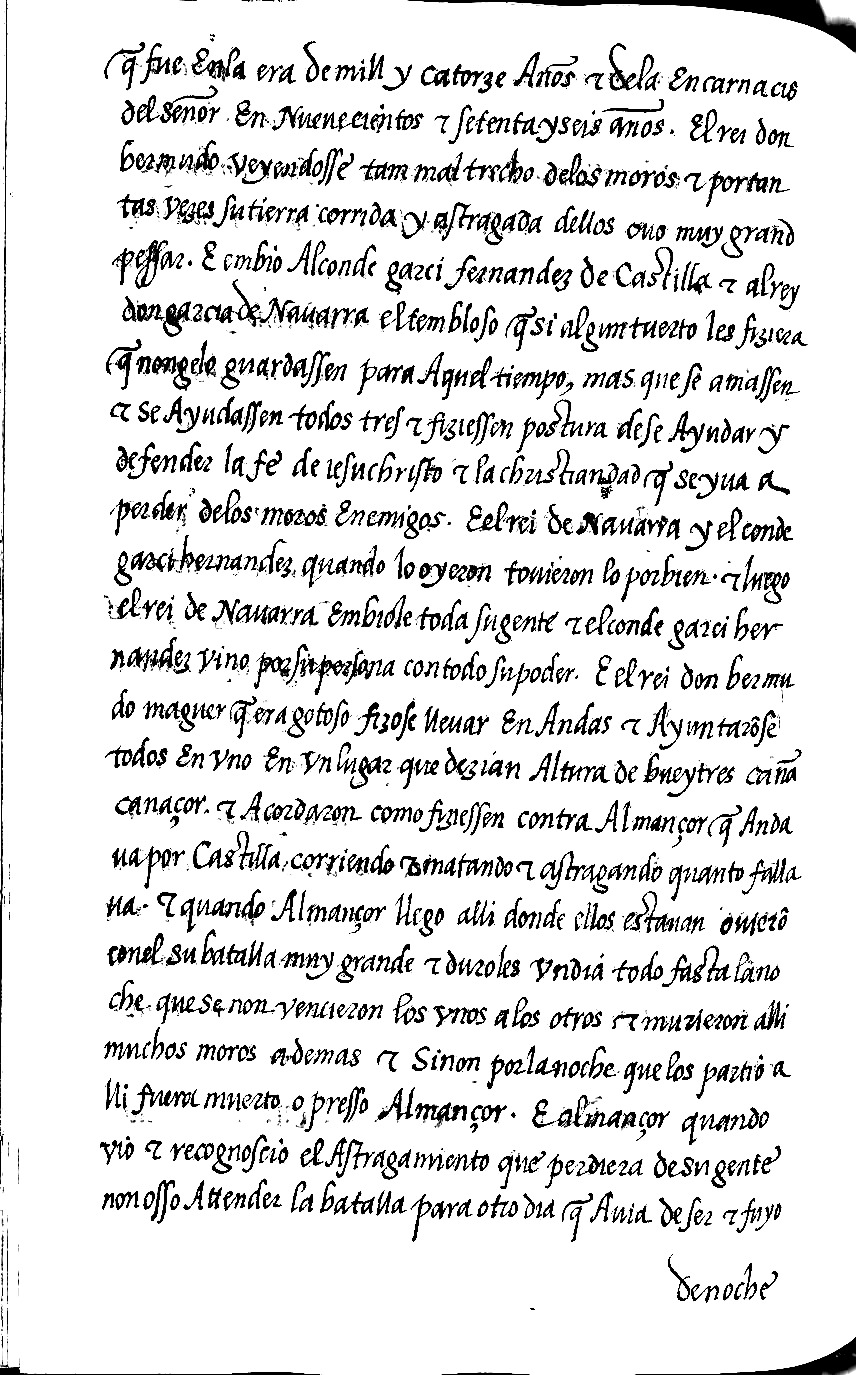 q̃ fue Enla era de mill y catorze Años ⁊ dela Encarnacio
del señor En Nueuecientos ⁊ setenta y seis años. El rei don
bermudo veyendosse tam mal trecho delos moros ⁊ por tan
tas vezes su tierra corrida y astragada dellos ouo muy grand
pessar. E embio Al conde garci fernandez de Castilla ⁊ al rey
don garcia de Nauarra el tembloso q̃ si algun tuerto les fiziera
q̃ non gelo guardassen para Aquel tiempo, mas que se amassen
⁊ se Ayudassen todos tres ⁊ fiziessen postura de se Ayudar y
defender la fe de iesuchristo ⁊ la christiandad q̃ se yua a
perder delos moros Enemigos. E el rei de Nauarra y el conde
garci hernandez quando lo oyeron touieron lo por bien. ⁊ luego
el rei de Nauarra Embiole toda su gente ⁊ el conde garci her
nandez vino por su persona con todo su poder. E el rei don bermu
do maguer q̃ era gotoso fizose lleuar En Andas ⁊ Ayuntarõse
todos En vno En vn lugar que dezian Altura de bueytres cañа
canaçor. ⁊ Acordaron como fiziessen contra Almançor q̃ Anda
ua por Castilla corriendo ⁊ matando ⁊ astragando quanto falla
ua. ⁊ quando Almançor llego alli donde ellos estauan ouierõ
conel su batalla muy grande ⁊ duroles vn dia todo fasta la no
che que se non vencieron los vnos a los otros ⁊ murieron alli
muchos moros ademas ⁊ Sinon por la noche que los partio a
lli fuera muerto o presso Almançor. E almançor quando
vio ⁊ recognoscio el Astragamiento que perdiera de su gente
non osso Attender la batalla para otro dia q̃ Auia de ser ⁊ fuyo
de noche